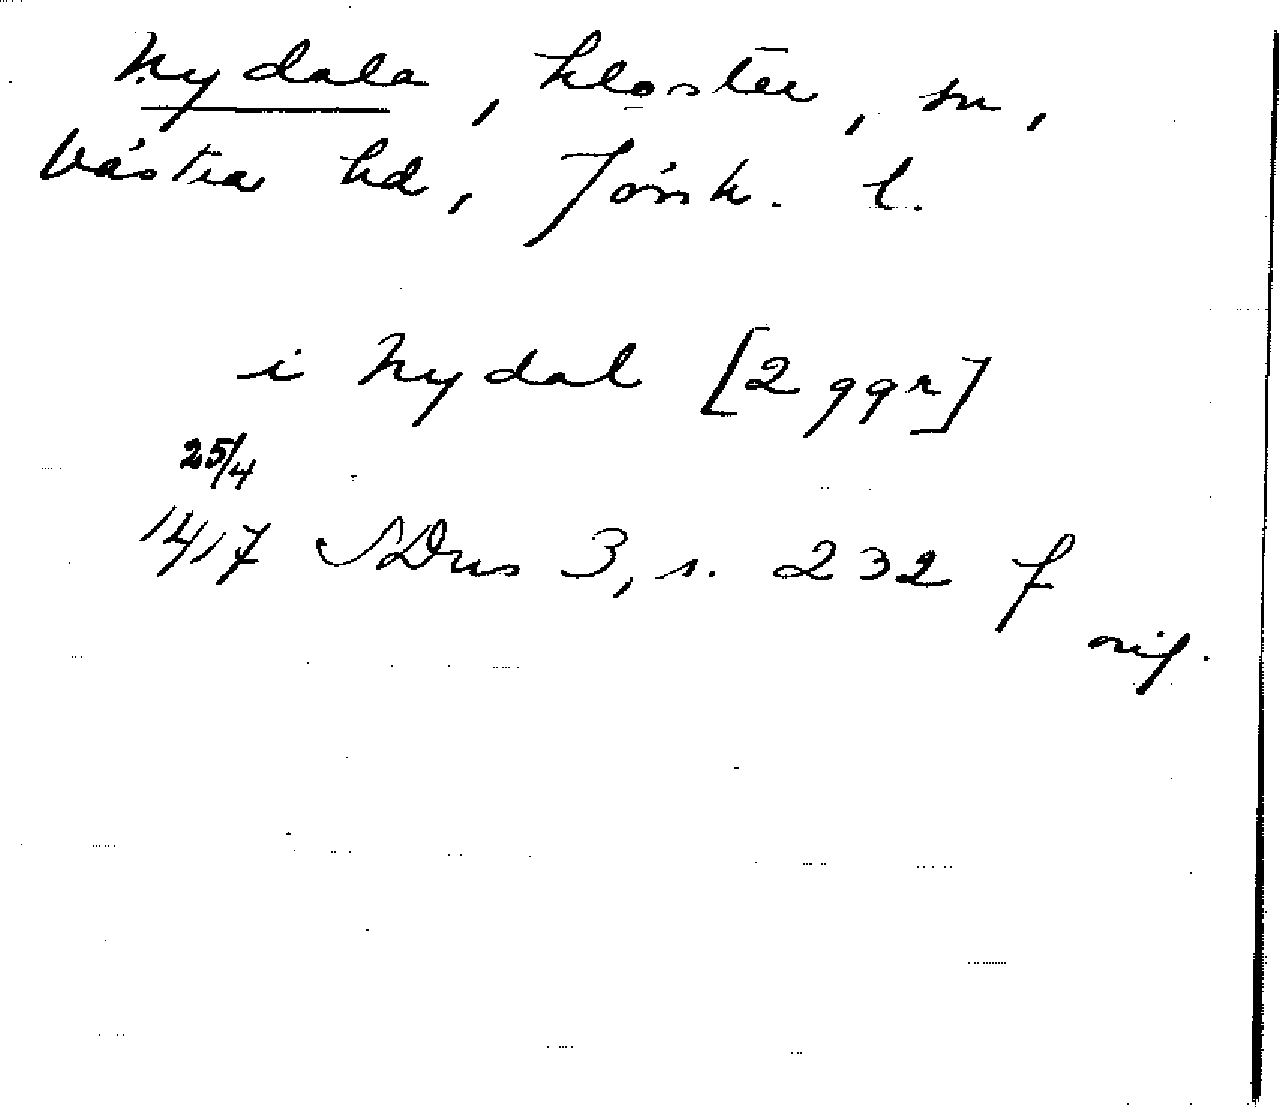 Nydala, kloster, sn,
Västra hd, Jönk. l.
i Nydal [2 ggr]
25/4
1417 SDns 3, s. 232 f
orig.